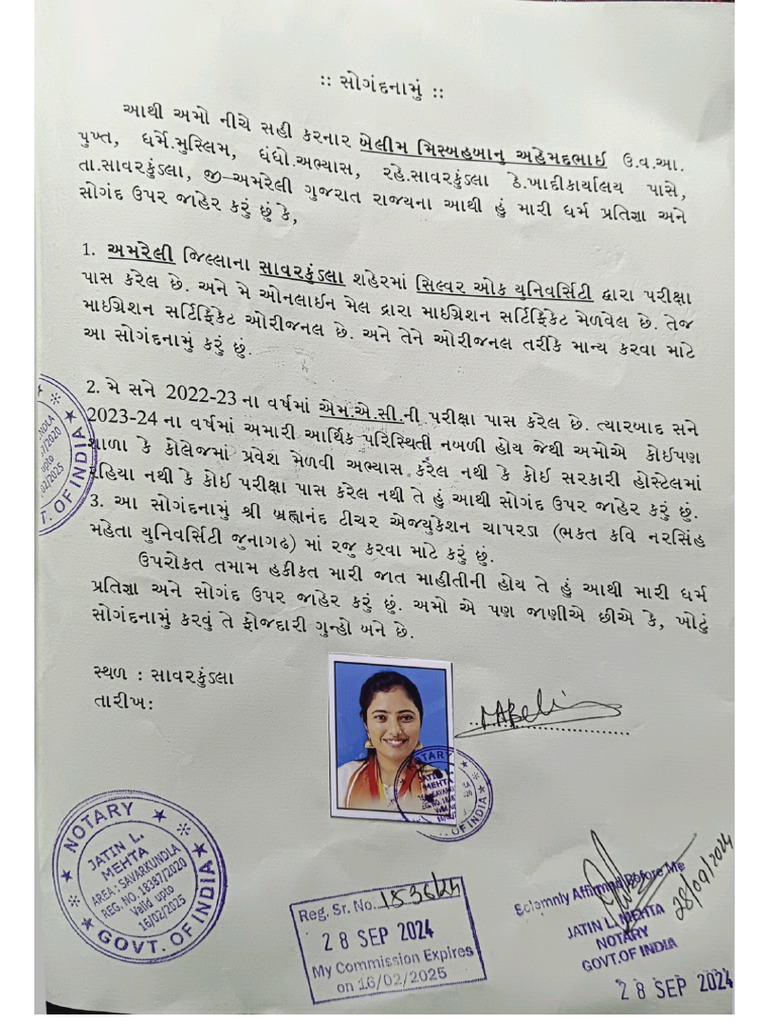 :: સોગંદનામું ::
આથી અમો નીચે સહી કરનાર બેલીમ મિસ્બાહબાનુ અહેમદભાઈ ઉ.વ.આ.
પુખ્ત, ધર્મે.મુસ્લિમ, ધંધો.અભ્યાસ, રહે.સાવરકુંડલા ઠે.ખાદીકાર્યાલય પાસે,
તા.સાવરકુંડલા, જી-અમરેલી ગુજરાત રાજ્યના આથી હું મારી ધર્મ પ્રતિજ્ઞા અને
સોગંદ ઉપર જાહેર કરું છું કે,
1. અમરેલી જિલ્લાના સાવરકુંડલા શહેરમાં સિલ્વર ઓક યુનિવર્સિટી દ્વારા પરીક્ષા
પાસ કરેલ છે. અને મે ઓનલાઈન મેલ દ્રારા માઈગ્રિશન સર્ટિફિકેટ મેળવેલ છે. તેજ
માઈગ્રિશન સર્ટિફિકેટ ઓરીજનલ છે. અને તેને ઓરીજનલ તરીકે માન્ય કરવા માટે
આ સોગંદનામું કરું છું.
2. મે સને 2022-23 ના વર્ષમાં એમ.એ.સી.ની પરીક્ષા પાસ કરેલ છે. ત્યારબાદ સને
2023-24 ના વર્ષમાં અમારી આર્થિક પરિસ્થિતી નબળી હોય જેથી અમોએ કોઈપણ
શાળા કે કોલેજમાં પ્રવેશ મેળવી અભ્યાસ કરેલ નથી કે કોઈ સરકારી હોસ્ટેલમાં
રહિયા નથી કે કોઈ પરીક્ષા પાસ કરેલ નથી તે હું આથી સોગંદ ઉપર જાહેર કરું છું.
3. આ સોગંદનામું શ્રી બ્રહ્માનંદ ટીચર એજ્યુકેશન ચાપરડા (ભકત કવિ નરસિંહ
મહેતા યુનિવર્સિટી જુનાગઢ) માં રજુ કરવા માટે કરું છું.
ઉપરોકત તમામ હકીકત મારી જાત માહીતીની હોય તે હું આથી મારી ધર્મ
પ્રતિજ્ઞા અને સોગંદ ઉપર જાહેર કરું છું. અમો એ પણ જાણીએ છીએ કે, ખોટું
સોગંદનામું કરવું તે ફોજદારી ગુન્હો બને છે.
સ્થળ : સાવરકુંડલા
તારીખ:
NOTARY
JATIN L.
MEHTA
AREA : SAVARKUNDLA
REG. NO. 18387/2020
Valid upto
16/02/2025
GOVT. OF INDIA
Reg. Sr. No. 1536/24
28 SEP 2024
My Commission Expires
on 16/02/2025
Solemnly Affirmed Before Me
28/09/2024
JATIN L. MEHTA
NOTARY
GOVT.OF INDIA
28 SEP 2024